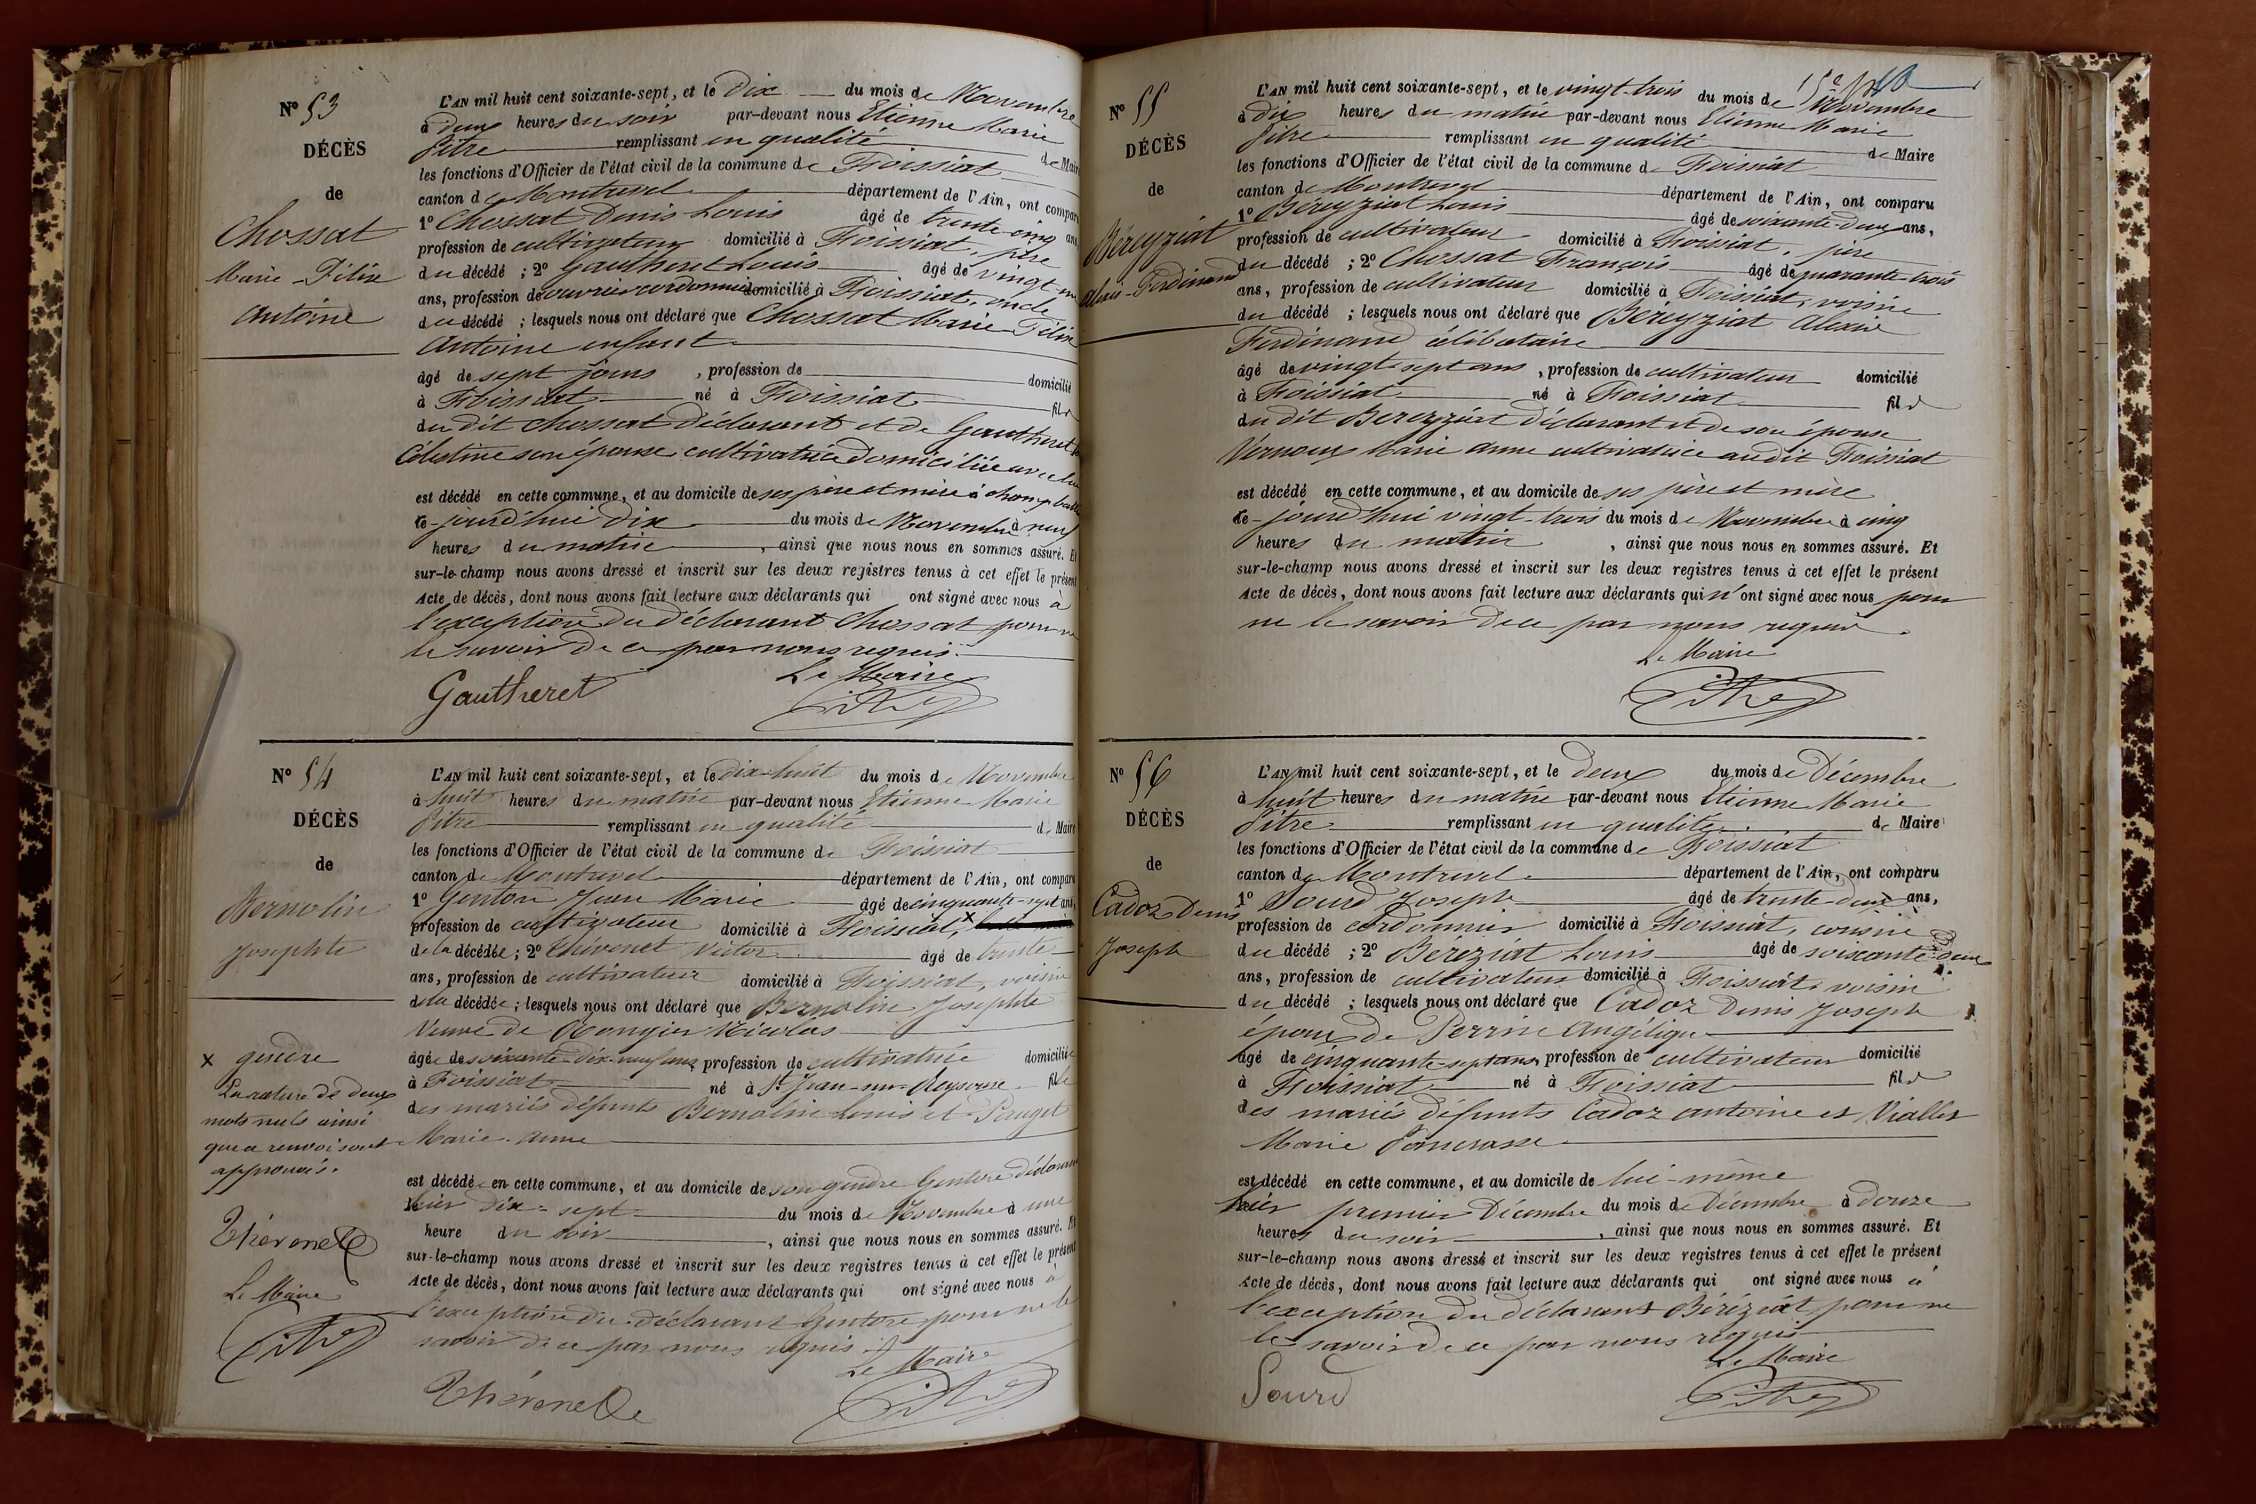 N° 53
DÉCÈS
de
Chossat
Marie-Félix
Antoine
L'AN mil huit cent soixante-sept, et le Dix du mois de Novembre
à Deux heures du soir par-devant nous Etienne Marie
Pitre remplissant en qualité de Maire
les fonctions d'Officier de l'état civil de la commune de Foissiat
canton de Montrevel département de l'Ain, ont comparu
1° Chossat Denis Louis âgé de trente-cinq ans,
profession de cultivateur domicilié à Foissiat, père
du décédé ; 2° Gautheret Louis âgé de vingt-un
ans, profession de ouvrier cordonnier domicilié à Foissiat, oncle
du décédé ; lesquels nous ont déclaré que Chossat Marie Félix
Antoine enfant
âgé de sept jours , profession de domicilié
à Foissiat né à Foissiat fils
du dit Chossat Déclarant et de Gautheret
Célestine son épouse cultivatrice Domiciliée avec lui
est décédé en cette commune, et au domicile de ses père et mère à
ce-jourd'hui dix du mois de Novembre à neuf
heures du matin , ainsi que nous nous en sommes assuré. Et
sur-le-champ nous avons dressé et inscrit sur les deux registres tenus à cet effet le présent
Acte de décès, dont nous avons fait lecture aux déclarants qui ont signé avec nous à
l'exception du déclarant Chossat pour ne
le savoir de ce par nous requis.
Le Maire
Gautheret
Pitre
N° 54
DÉCÈS
de
Bernolin
Josephte
L'AN mil huit cent soixante-sept, et le Dix-huit du mois de Novembre
à huit heures du matin par-devant nous Etienne Marie
Pitre remplissant en qualité de Maire
les fonctions d'Officier de l'état civil de la commune de Foissiat
canton de Montrevel département de l'Ain, ont comparu
1° Genton Jean Marie âgé de cinquante-sept ans,
profession de cultivateur domicilié à Foissiat, x
de la décédée ; 2° Thévenet Victor âgé de trente
ans, profession de cultivateur domicilié à Foissiat, voisin
de la décédée ; lesquels nous ont déclaré que Bernolin Josephte
Veuve de Rongier Nicolas
âgée de soixante-dix-neuf ans, profession de cultivatrice domiciliée
à Foissiat né à St Jean-sur-Reyssouze fille
des mariés défunts Bernolin Louis et Puget
Marie-Anne
est décédée en cette commune, et au domicile de son gendre Genton déclarant
hier Dix-sept du mois de Novembre à une
heure du soir , ainsi que nous nous en sommes assuré. Et
sur-le-champ nous avons dressé et inscrit sur les deux registres tenus à cet effet le présent
Acte de décès, dont nous avons fait lecture aux déclarants qui ont signé avec nous à
l'exception du déclarant Genton pour ne le
savoir de ce par nous requis
Le Maire
Thévenet
Pitre
x gendre
La rature de deux
mots nuls ainsi
que ce renvoi sont
approuvés.
Thévenet
Le Maire
Pitre
N° 55
DÉCÈS
de
Béreyziat
Alexis-Ferdinand
L'AN mil huit cent soixante-sept, et le vingt-trois du mois de Novembre
à dix heures du matin par-devant nous Etienne Marie
Pitre remplissant en qualité de Maire
les fonctions d'Officier de l'état civil de la commune de Foissiat
canton de Montrevel département de l'Ain, ont comparu
1° Béreyziat Louis âgé de soixante-deux ans,
profession de cultivateur domicilié à Foissiat, père
du décédé ; 2° Chossat François âgé de quarante-trois
ans, profession de cultivateur domicilié à Foissiat, voisin
du décédé ; lesquels nous ont déclaré que Béreyziat Alexis
Ferdinand célibataire
âgé de vingt-sept ans , profession de cultivateur domicilié
à Foissiat né à Foissiat fils
du dit Bereyziat Déclarant et de son épouse
Vernoux Marie Anne cultivatrice audit Foissiat
est décédé en cette commune, et au domicile de ses père et mère
ce-jourd'hui vingt-trois du mois de Novembre à cinq
heures du matin , ainsi que nous nous en sommes assuré. Et
sur-le-champ nous avons dressé et inscrit sur les deux registres tenus à cet effet le présent
Acte de décès, dont nous avons fait lecture aux déclarants qui n'ont signé avec nous pour
ne le savoir de ce par nous requis.
Le Maire
Pitre
N° 56
DÉCÈS
de
Cadoz Denis
Joseph
L'AN mil huit cent soixante-sept, et le Deux du mois de Décembre
à huit heures du matin par-devant nous Etienne Marie
Pitre remplissant en qualité de Maire
les fonctions d'Officier de l'état civil de la commune de Foissiat
canton de Montrevel département de l'Ain, ont comparu
1° Sourd Joseph âgé de trente-deux ans,
profession de cordonnier domicilié à Foissiat, cousin
du décédé ; 2° Bereziat Louis âgé de soixante-deux
ans, profession de cultivateur domicilié à Foissiat, voisin
du décédé ; lesquels nous ont déclaré que Cadoz Denis Joseph
époux de Perrin Angélique
âgé de cinquante-sept ans profession de cultivateur domicilié
à Foissiat né à Foissiat fils
des mariés défunts Cadoz Antoine et Viallet
Marie Pancrasse
est décédé en cette commune, et au domicile de lui-même
hier premier Décembre du mois de Décembre à douze
heures du soir , ainsi que nous nous en sommes assuré. Et
sur-le-champ nous avons dressé et inscrit sur les deux registres tenus à cet effet le présent
Acte de décès, dont nous avons fait lecture aux déclarants qui ont signé avec nous à
l'exception du déclarant Béréziat pour ne
le savoir de ce par nous requis
Le Maire
Sourd
Pitre